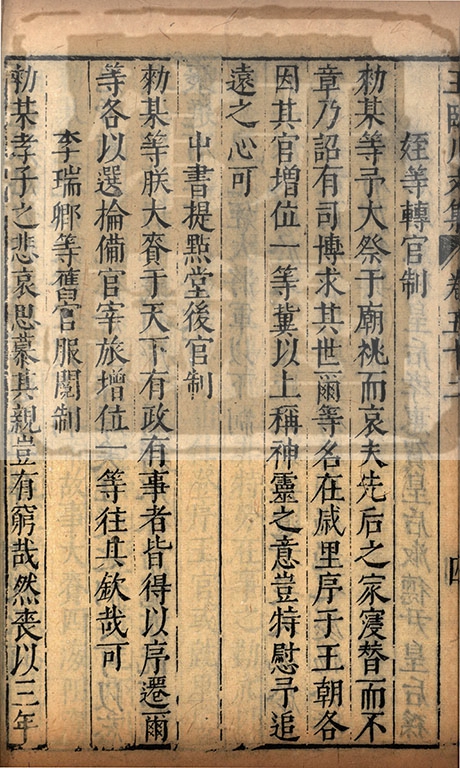 王臨川文集 卷五十二 四
姪等轉官制
勑某等予大祭于廟祧而哀夫先后之家寖替而不
章乃詔有司博求其世爾等名在戚里序于王朝各
因其官增位一等冀以上稱神靈之意豈特慰予追
遠之心可
中書提點堂後官制
勑某等朕大賚于天下有政有事者皆得以序遷爾
等各以選掄備官宰旅增位一等往其欽哉可
李瑞卿等舊官服闋制
勑某孝子之悲哀思慕其親豈有窮哉然喪以三年